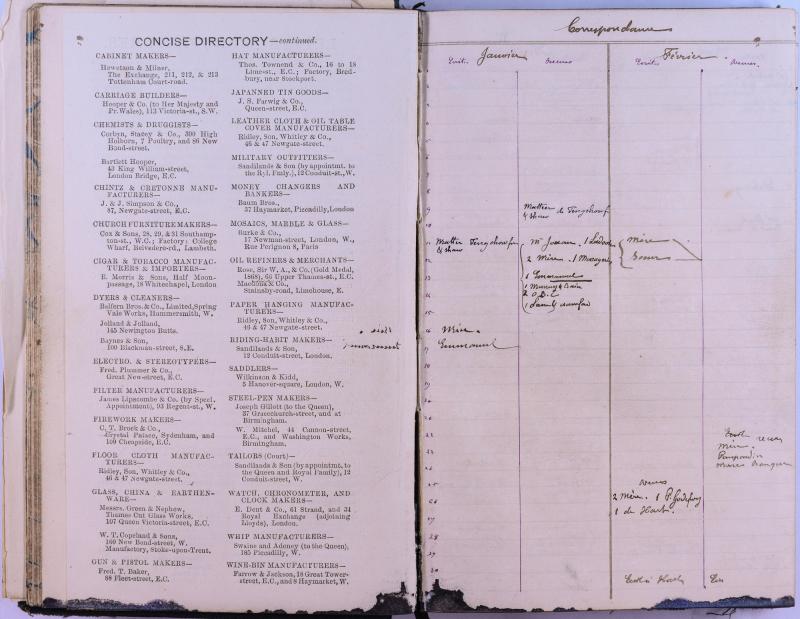 CONCISE DIRECTORY—continued.
CABINET MAKERS—
Hewetson & Milner,
The Exchange, 211, 212, & 213
Tottenham Court-road.
CARRIAGE BUILDERS—
Hooper & Co. (to Her Majesty and
Pr. Wales), 113 Victoria-st., S.W.
CHEMISTS & DRUGGISTS—
Corbyn, Stacey & Co., 300 High
Holborn, 7 Poultry, and 86 New
Bond-street.
Bartlett Hooper,
43 King William-street,
London Bridge, E.C.
CHINTZ & CRETONNE MANU-
FACTURERS—
J. & J. Simpson & Co.,
87, Newgate-street, E.C.
CHURCH FURNITURE MAKERS—
Cox & Sons, 28, 29, & 31 Southamp-
ton-st., W.C.; Factory: College
Wharf, Belvedere-rd., Lambeth.
CIGAR & TOBACCO MANUFAC-
TURERS & IMPORTERS—
B. Morris & Sons, Half Moon-
passage, 18 Whitechapel, London
DYERS & CLEANERS—
Belfern Bros. & Co., Limited, Spring
Vale Works, Hammersmith, W.
Jolland & Jolland,
145 Newington Butts.
Baynes & Son,
100 Blackman-street, S.E.
ELECTRO. & STEREOTYPERS—
Fred. Plummer & Co.,
Great New-street, E.C.
FILTER MANUFACTURERS—
James Lipscombe & Co. (by Specl.
Appointment), 93 Regent-st., W.
FIREWORK MAKERS—
C. T. Brock & Co.,
Crystal Palace, Sydenham, and
109 Cheapside, E.C.
FLOOR CLOTH MANUFAC-
TURERS—
Ridley, Son, Whitley & Co.,
46 & 47 Newgate-street.
GLASS, CHINA & EARTHEN-
WARE—
Messrs. Green & Nephew,
Thames Cut Glass Works,
107 Queen Victoria-street, E.C.
W. T. Copeland & Sons,
160 New Bond-street, W.
Manufactory, Stoke-upon-Trent.
GUN & PISTOL MAKERS—
Fred. T. Baker,
88 Fleet-street, E.C.
HAT MANUFACTURERS—
Thos. Townend & Co., 16 to 18
Lime-st., E.C.; Factory, Bred-
bury, near Stockport.
JAPANNED TIN GOODS—
J. S. Farwig & Co.,
Queen-street, E.C.
LEATHER CLOTH & OIL TABLE
COVER MANUFACTURERS—
Ridley, Son, Whitley & Co.,
46 & 47 Newgate-street.
MILITARY OUTFITTERS—
Sandilands & Son (by appointmt. to
the Ryl. Fmly.), 12 Conduit-st., W.
MONEY CHANGERS AND
BANKERS—
Baum Bros.,
37 Haymarket, Piccadilly, London
MOSAICS, MARBLE & GLASS—
Burke & Co.,
17 Newman-street, London, W.,
Rue Perignon 8, Paris
OIL REFINERS & MERCHANTS—
Rose, Sir W. A., & Co. (Gold Medal,
1868), 66 Upper Thames-st., E.C.
& Co.,
Stainsby-road, Limehouse, E.
PAPER HANGING MANUFAC-
TURERS—
Ridley, Son, Whitley & Co.,
46 & 47 Newgate-street.
RIDING-HABIT MAKERS—
Sandilands & Son,
12 Conduit-street, London.
SADDLERS—
Wilkinson & Kidd,
5 Hanover-square, London, W.
STEEL-PEN MAKERS—
Joseph Gillott (to the Queen),
37 Gracechurch-street, and at
Birmingham.
W. Mitchel, 44 Cannon-street,
E.C., and Washington Works,
Birmingham.
TAILORS (Court)—
Sandilands & Son (by appointmt. to
the Queen and Royal Family), 12
Conduit-street, W.
WATCH, CHRONOMETER, AND
CLOCK MAKERS—
E. Dent & Co., 61 Strand, and 34
Royal Exchange (adjoining
Lloyds), London.
WHIP MANUFACTURERS—
Swaine and Adeney (to the Queen),
185 Piccadilly, W.
WINE-BIN MANUFACTURERS—
Farrow & Jackson, 18 Great Tower-
street, E.C., and 8 Haymarket, W.
Correspondance
Janvier
Février
& Shaw
2 Mère. 1
1 Emmanuel
Mère
Mère.
Emmanuel
Mère.
2 Mère. 1 P. Godefroy